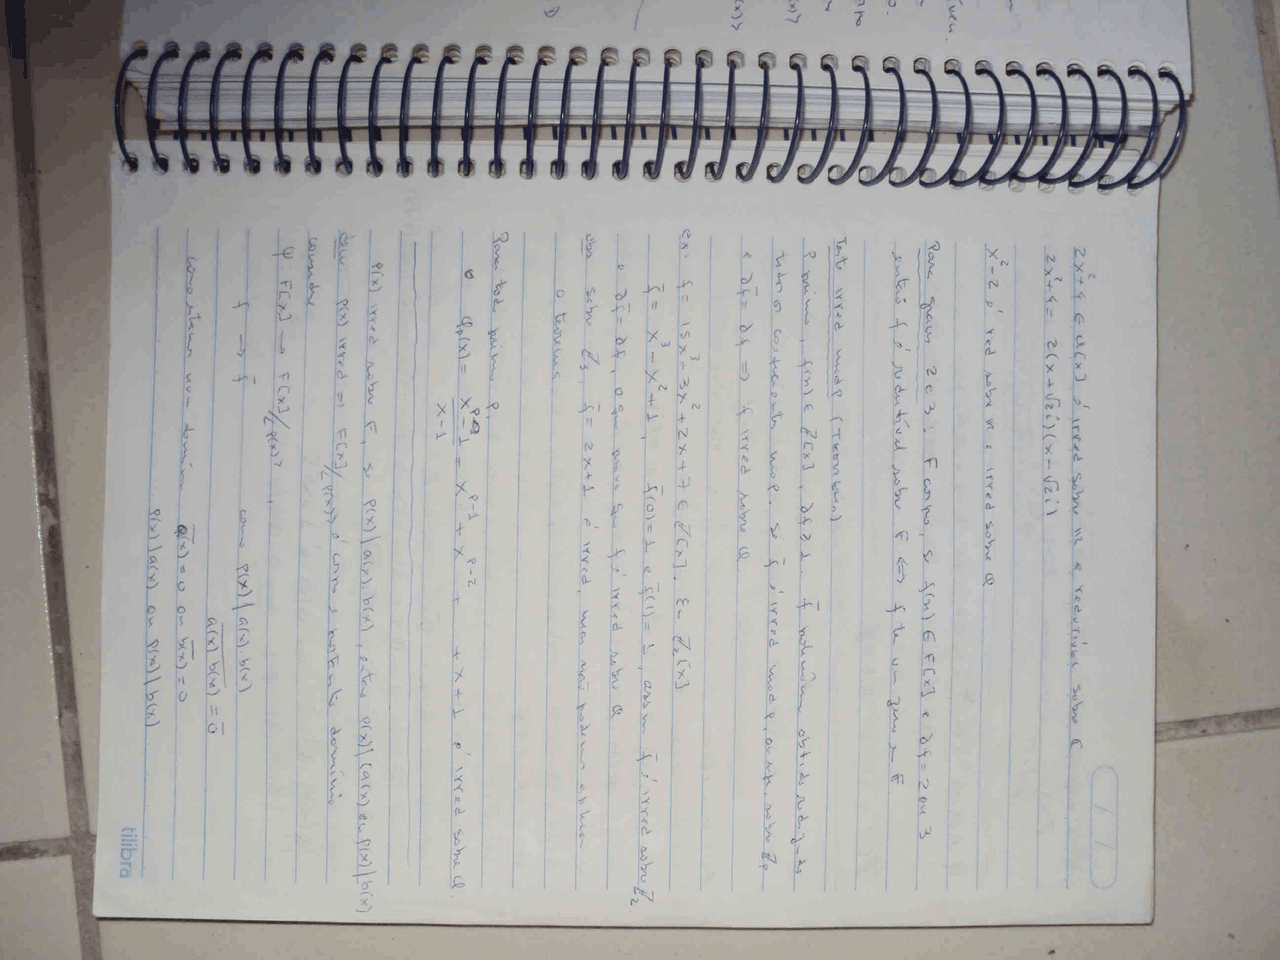 2x²+4 ∈ Q[x] é irred sobre IR e redutível sobre C
2x²+4 = 2(x+√2i)(x-√2i)
x²-2 é red sobre IR e irred sobre Q
Para graus 2 e 3: F corpo, se f(x) ∈ F[x] e ∂f = 2 ou 3
então f é redutível sobre F ⟺ f te um zero em F
Teste irred mod p (Teorema)
P primo, f(x) ∈ Z[x], ∂f ≥ 1. f̄ polinômio obtido
todos o coeficiente mod p. se f̄ é irred mod p, ou seja sobre Zp
e ∂f̄ = ∂f ⟹ f irred sobre Q
ex: f = 15x³-3x²+2x+7 ∈ Z[x]. Em Z₂[x]
f̄ = x³-x²+1, f̄(0)=1 e f̄(1)=1, assim f̄ é irred sobre Z₂
e ∂f̄ = ∂f, o q f é irred sobre Q
obs sobre Z₃, f̄ = 2x+1 é irred, mas não podemos aplicar
o teorema
Para todo primo p,
φp(x) = x^p-1/x-1 = x^p-1 + x^p-2 + + x+1 é irred sobre Q.
p(x) irred sobre F, se p(x)|a(x).b(x), então p(x)|a(x) ou p(x)|b(x)
p(x) irred ⟹ F[x]/<p(x)> é corpo e portanto domínio
considere
ψ: F[x] → F[x]/<p(x)>,
f → f̄ como p(x)|a(x).b(x)
a(x)b(x) = 0̄
como estamos num domínio a(x)=0 ou b(x)=0
p(x)|a(x) ou p(x)|b(x)
tilibra